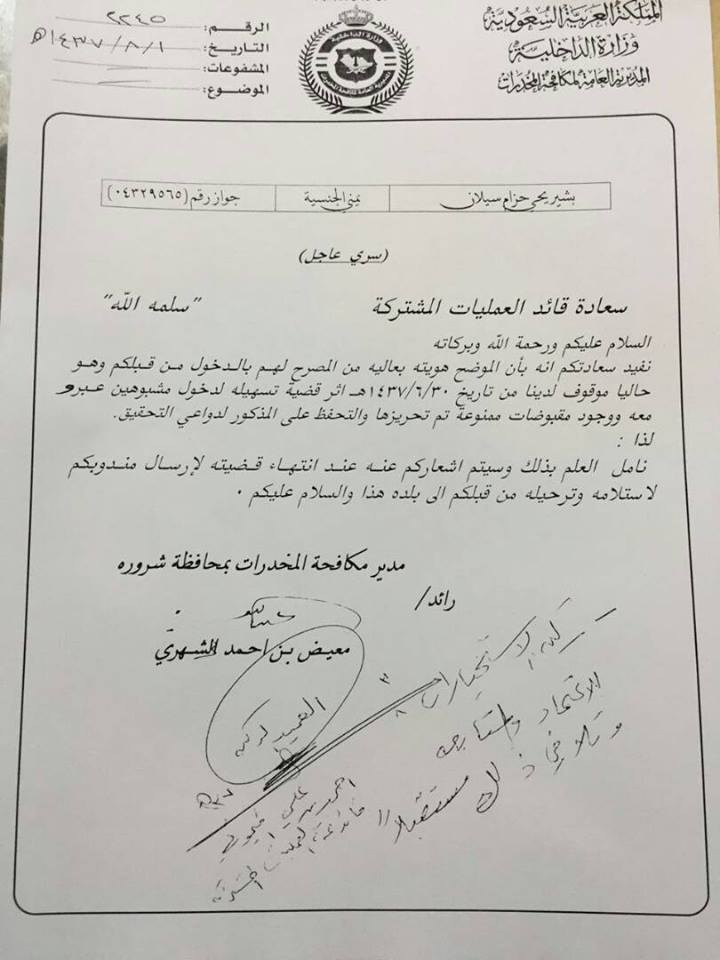 المملكة العربية السعودية
وزارة الداخلية
المديرية العامة لمكافحة المخدرات
وزارة الداخلية
الرقم: ٢٢٤٥
التاريخ: ١٤٣٧/٨/١هـ
المشفوعات:
الموضوع:
بشير يحي حزام سيلان يمني الجنسية جواز رقم (٠٤٣٢٩٥٦٥)
(سري عاجل)
سعادة قائد العمليات المشتركة "سلمه الله"
السلام عليكم ورحمة الله وبركاته
نفيد سعادتكم انه بأن الموضح هويته بعاليه من المصرح لهم بالدخول من قبلكم وهو
حاليا موقوف لدينا من تاريخ ١٤٣٧/٦/٣٠هـ اثر قضية تسهيله لدخول مشبوهين عبرو
معه ووجود مقبوضات ممنوعة تم تحريزها والتحفظ على المذكور لدواعي التحقيق.
لذا :
نامل العلم بذلك وسيتم اشعاركم عنه عند انتهاء قضيته لإرسال مندوبكم
لاستلامه وترحيله من قبلكم الى بلده هذا والسلام عليكم .
مدير مكافحة المخدرات بمحافظة شروره
رائد/
معيض بن احمد الشهري
العميد
الاستخبارات
وتلافي ذلك مستقبلا